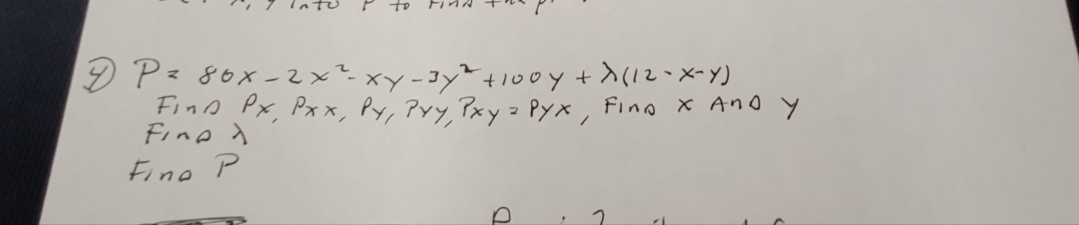 x, y into P to find the p
4) P = 80x - 2x² - xy - 3y² + 100y + λ(12 - x - y)
Find Px, Pxx, Py, Pyy, Pxy = Pyx, Find x And y
Find λ
Find P